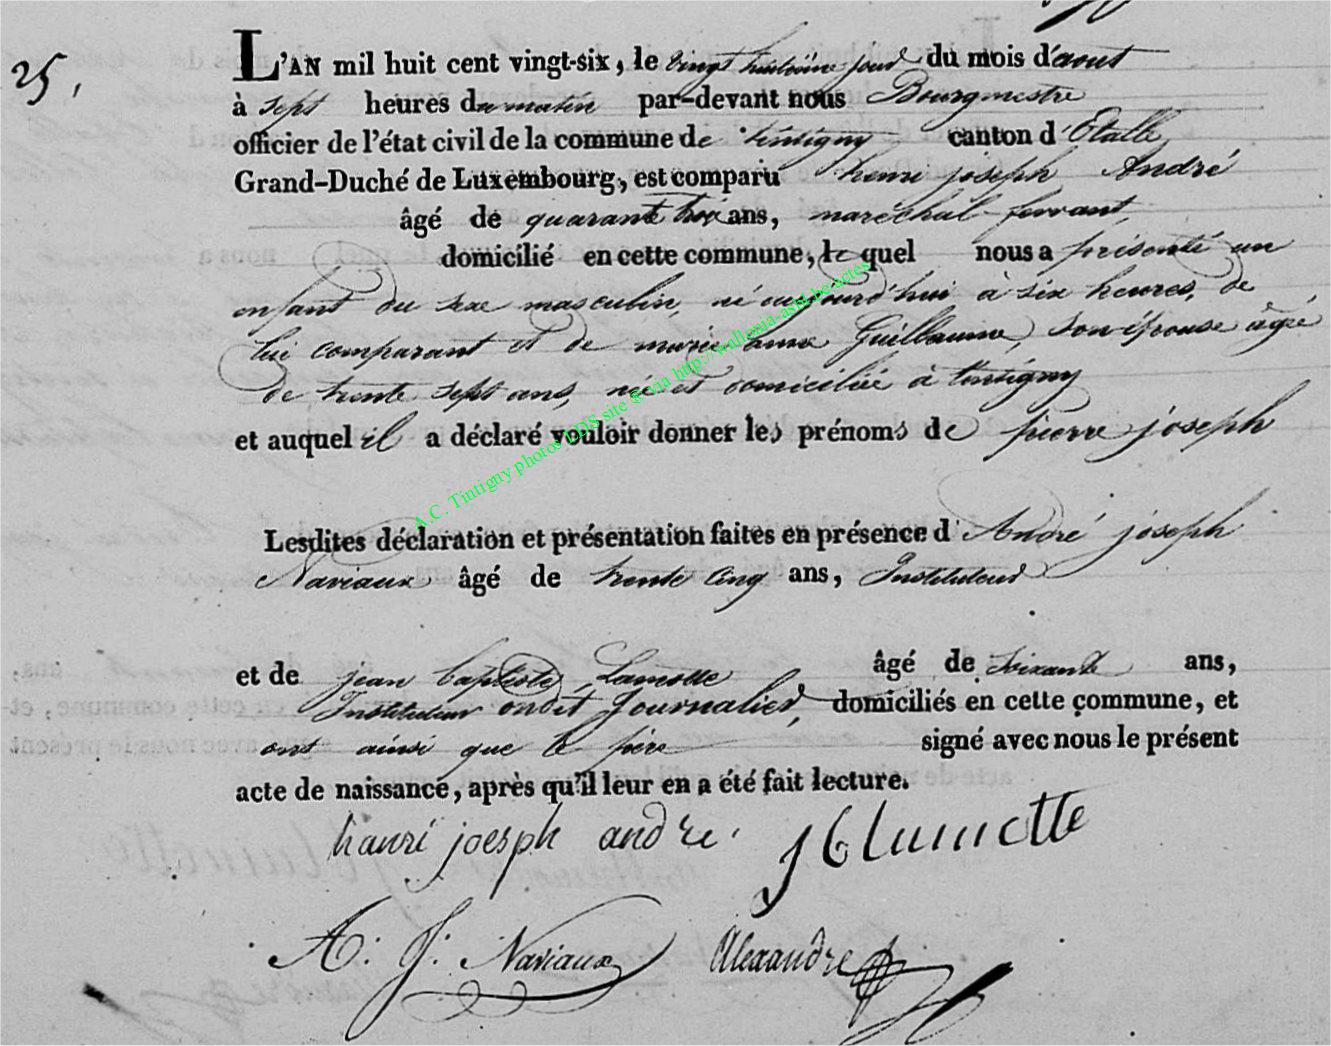 25,
L'AN mil huit cent vingt-six, le vingt huitième jour du mois d'aout
à sept heures du matin par-devant nous Bourgmestre
officier de l'état civil de la commune de tintigny canton d'Etalle
Grand-Duché de Luxembourg, est comparu henri joseph André
âgé de quarante trois ans, maréchal-ferrant,
domicilié en cette commune, le quel nous a présenté un
enfant du sexe masculin, né aujourd'hui à six heures, de
lui comparant et de marie anne Guillaume, son épouse âgée
de trente sept ans, née et domiciliée à tintigny
et auquel il a déclaré vouloir donner les prénoms de pierre joseph
Lesdites déclaration et présentation faites en présence d'André joseph
Naviaux âgé de trente cinq ans, Instituteur
et de jean baptiste Lamotte âgé de soixante ans,
Instituteur ondit Journalier, domiciliés en cette commune, et
ont ainsi que le père signé avec nous le présent
acte de naissance, après qu'il leur en a été fait lecture.
hanri joesph andre.
J b lamotte
A: J: Naviaux Alexandre
A.C. Tintigny photos LDS site & via http://wallonia-asbl.be-actes